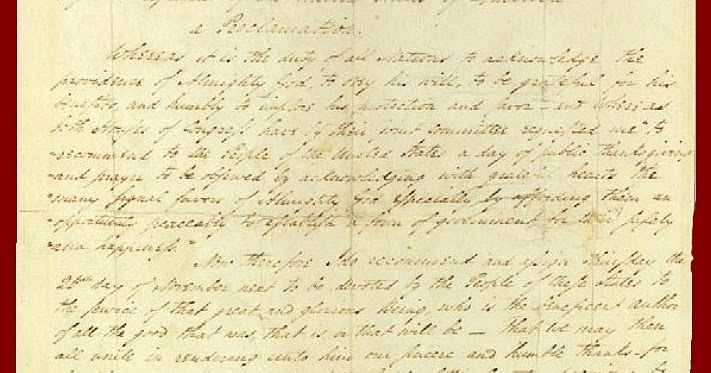 of the United States of America
a Proclamation.
Whereas it is the duty of all Nations to acknowledge the
providence of Almighty God, to obey his will, to be grateful for his
benefits, and humbly to implore his protection and favor – and Whereas
both Houses of Congress have by their joint Committee requested me "to
"recommend to the People of the United States a day of public thanksgiving
"and prayer to be observed by acknowledging with grateful hearts the
"many signal favors of Almighty God especially by affording them an
"opportunity peaceably to establish a form of government for their safety
"and happiness."
Now therefore I do recommend and assign Thursday the
26th day of November next to be devoted by the People of these States to
the service of that great and glorious Being, who is the beneficent author
of all the good that was, that is, or that will be – that we may then
all unite in rendering unto him our sincere and humble thanks – for